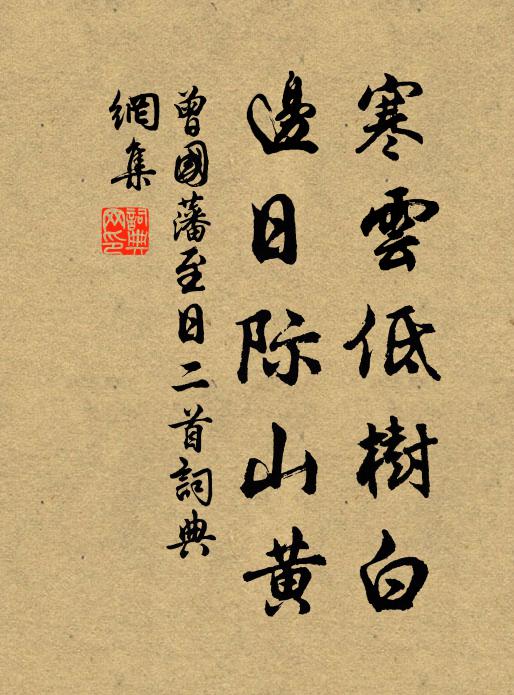 寒雲低樹白
邊日际山黃
曾國藩至日二首詞典
網集
詞典網印